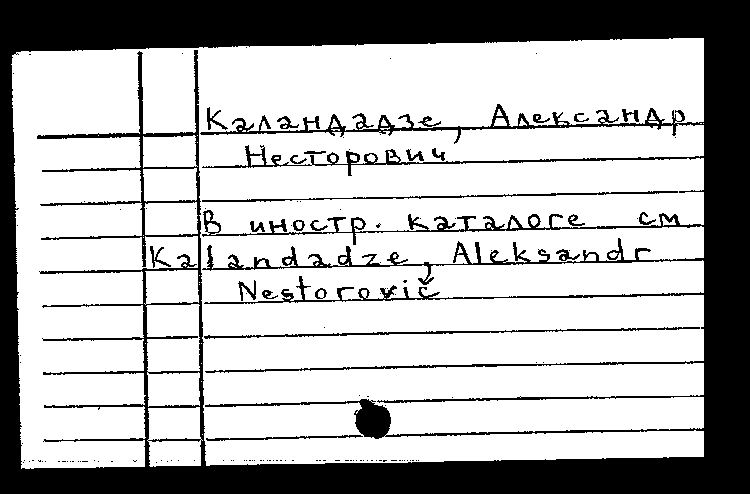 Каландадзе, Александр
Несторович
В иностр. каталоге см
Kalandadze, Aleksandr
Nestorovič